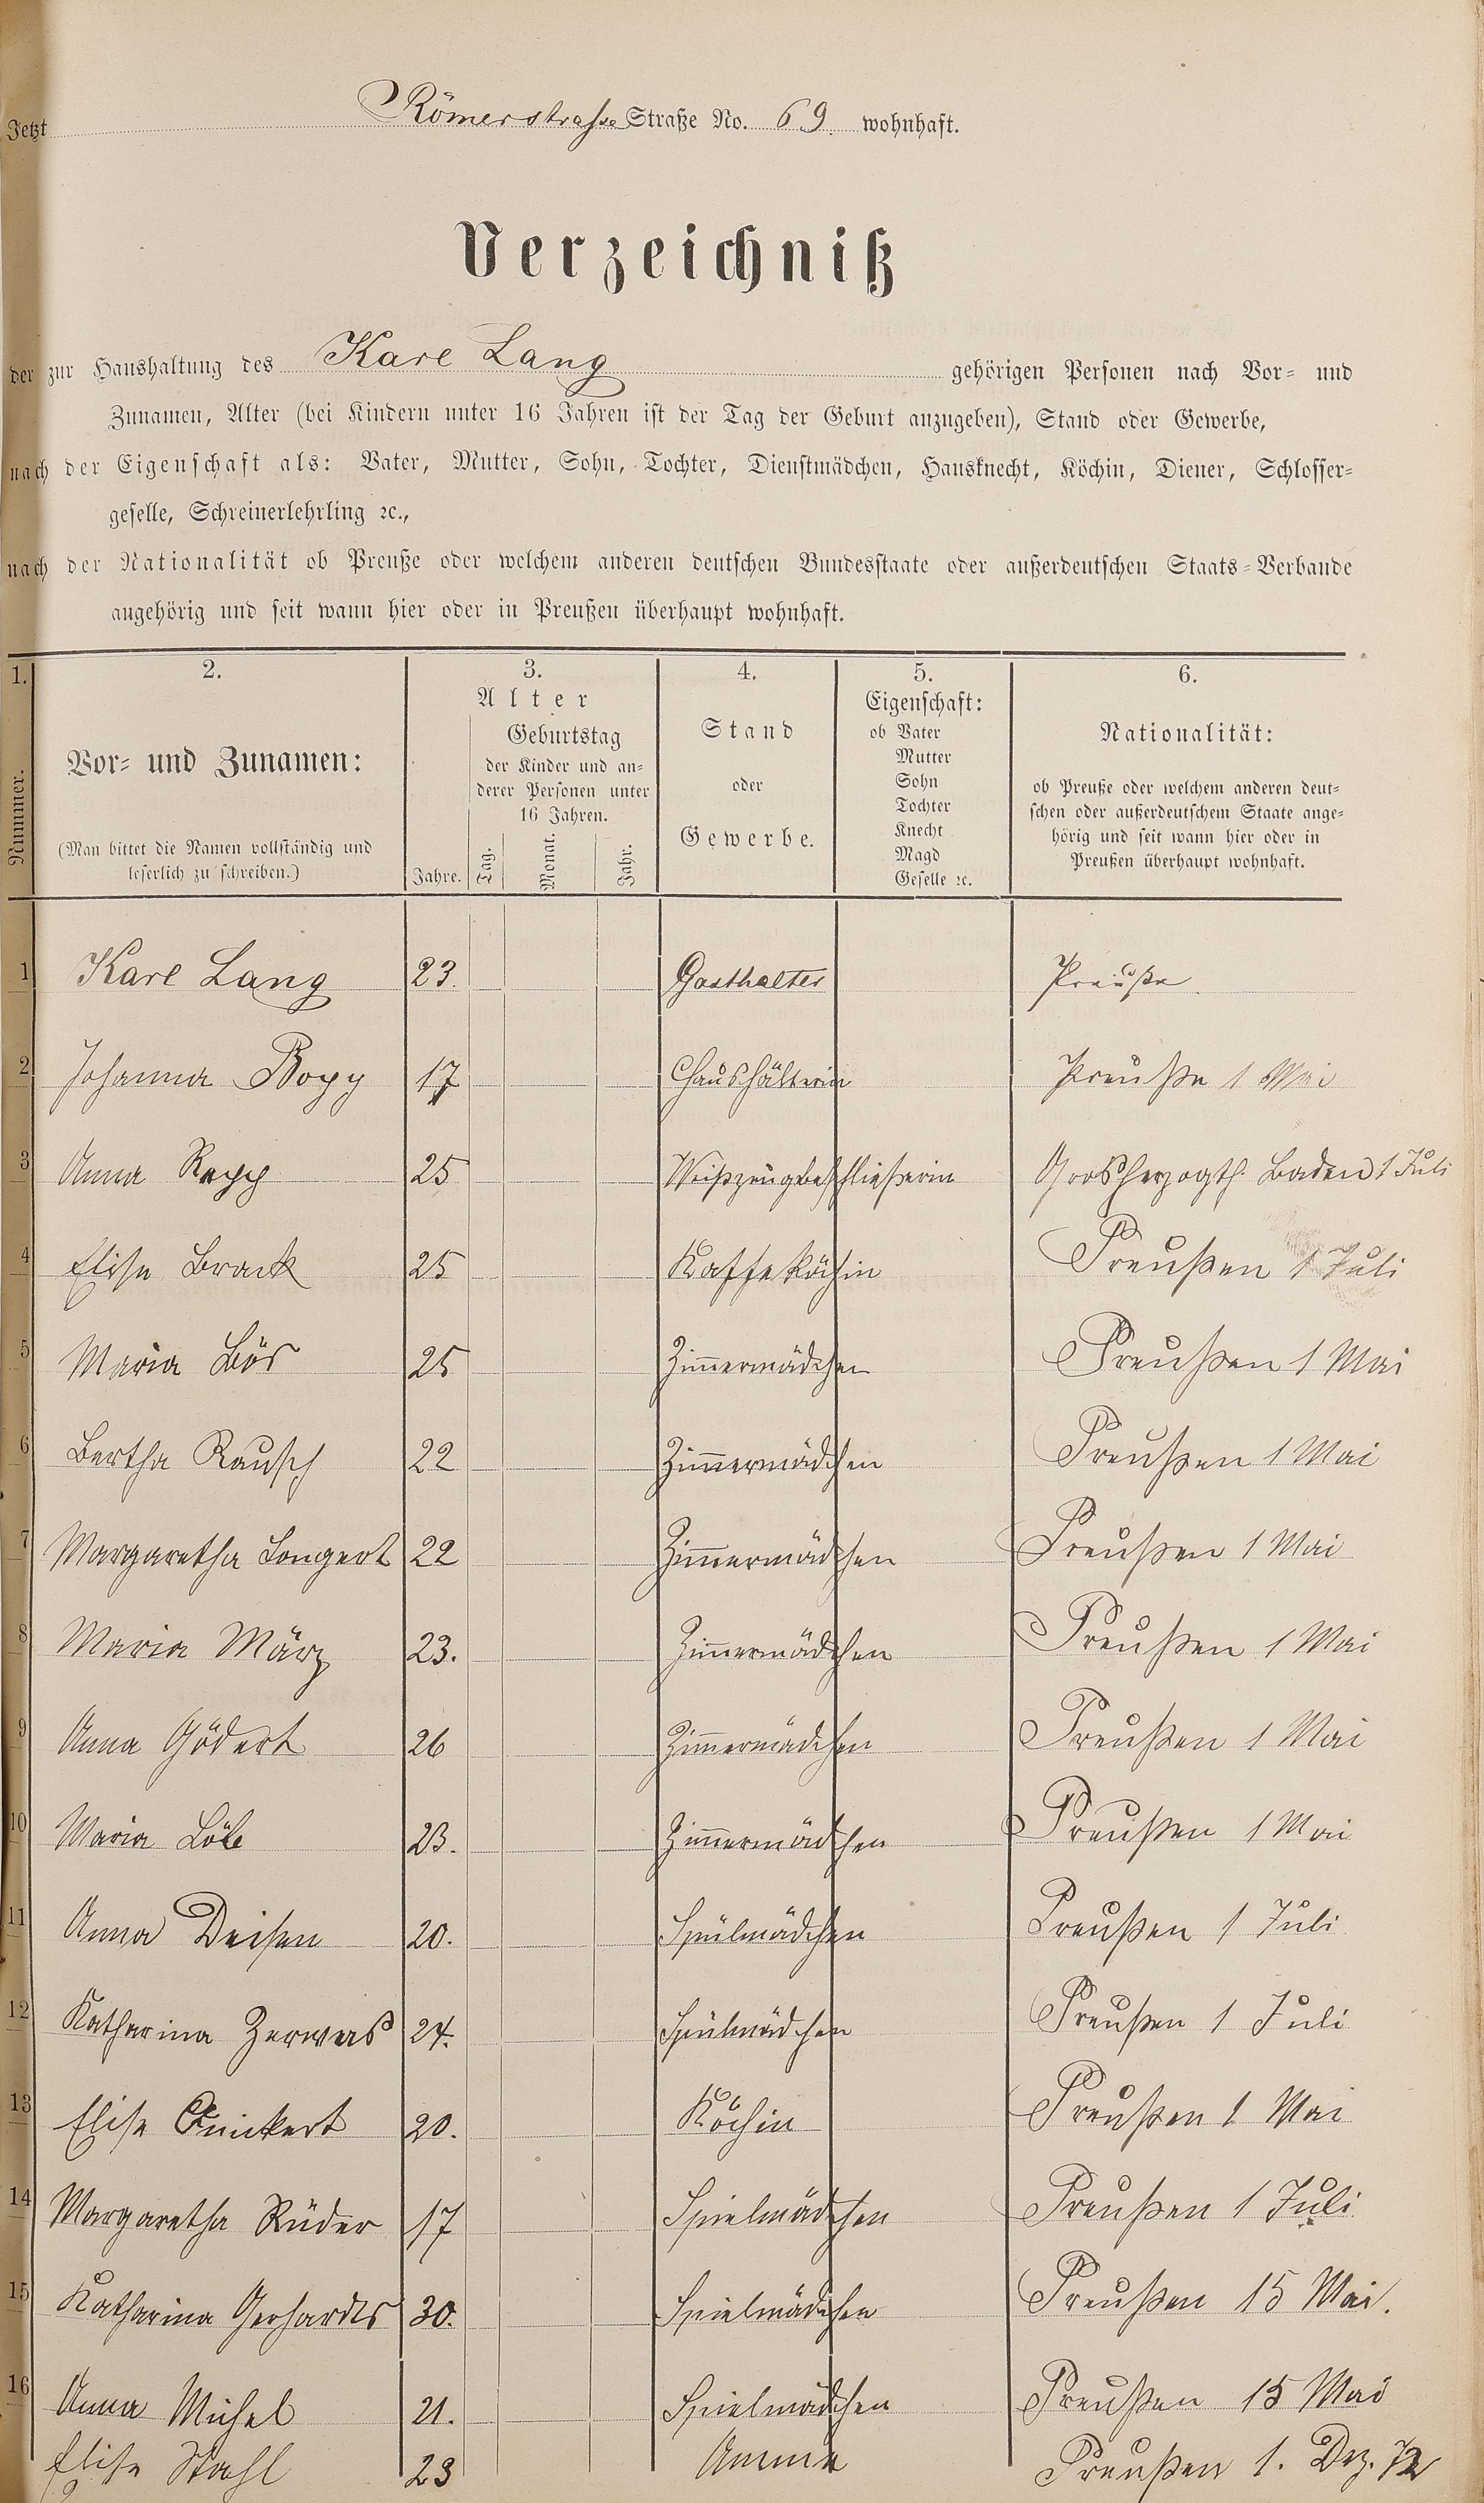 Jetzt Römerstrasse Straße No. 69. wohnhaft.
Verzeichniß
der zur Haushaltung des Karl Lang gehörigen Personen nach Vor- und
Zunamen, Alter (bei Kindern unter 16 Jahren ist der Tag der Geburt anzugeben), Stand oder Gewerbe,
nach der Eigenschaft als: Vater, Mutter, Sohn, Tochter, Dienstmädchen, Hausknecht, Köchin, Diener, Schlosser-
geselle, Schreinerlehrling ꝛc.,
nach der Nationalität ob Preuße oder welchem anderen deutschen Bundesstaate oder außerdeutschen Staats-Verbande
angehörig und seit wann hier oder in Preußen überhaupt wohnhaft.
1. Nummer.
2.
Vor- und Zunamen:
(Man bittet die Namen vollständig und
leserlich zu schreiben.)
3.
Alter
Jahre.
Geburtstag
der Kinder und an-
derer Personen unter
16 Jahren.
Tag. Monat. Jahr.
4.
Stand
oder
Gewerbe.
5.
Eigenschaft:
ob Vater
Mutter
Sohn
Tochter
Knecht
Magd
Geselle ꝛc.
6.
Nationalität:
ob Preuße oder welchem anderen deut-
schen oder außerdeutschem Staate ange-
hörig und seit wann hier oder in
Preußen überhaupt wohnhaft.
1 Karl Lang 23. Gasthalter Preuße.
2 Johanna Bopp 17 Haushälterin Preuße 1 Mai
3 Anna Repp 25 Weißzeugbeschließerin Grosherzogth. Baden 1 Juli
4 Elise Brack 25 Kaffeköchin Preußen 1 Juli
5 Maria Bös 25 Zimmermädchen Preußen 1 Mai
6 Bertha Rausch 22 Zimmermädchen Preußen 1 Mai
7 Margaretha Longert 22 Zimmermädchen Preußen 1 Mai
8 Maria März 23. Zimmermädchen Preußen 1 Mai
9 Anna Gödert 26 Zimmermädchen Preußen 1 Mai
10 Maria Löb 23. Zimmermädchen Preußen 1 Mai
11 Anna Deisen 20. Spülmädchen Preußen 1 Juli
12 Katharina Zerwas 24. Spülmädchen Preußen 1 Juli
13 Elise 20. Köchin Preußen 1 Mai
14 Margaretha Rüder 17 Spielmädchen Preußen 1 Juli
15 Katharina Gerhardts 30. Spielmädchen Preußen 15 Mai.
16 Anna Michel 21. Spielmädchen Preußen 15 Mai
Elise Stahl 23 Amme Preußen 1. Dez. 72